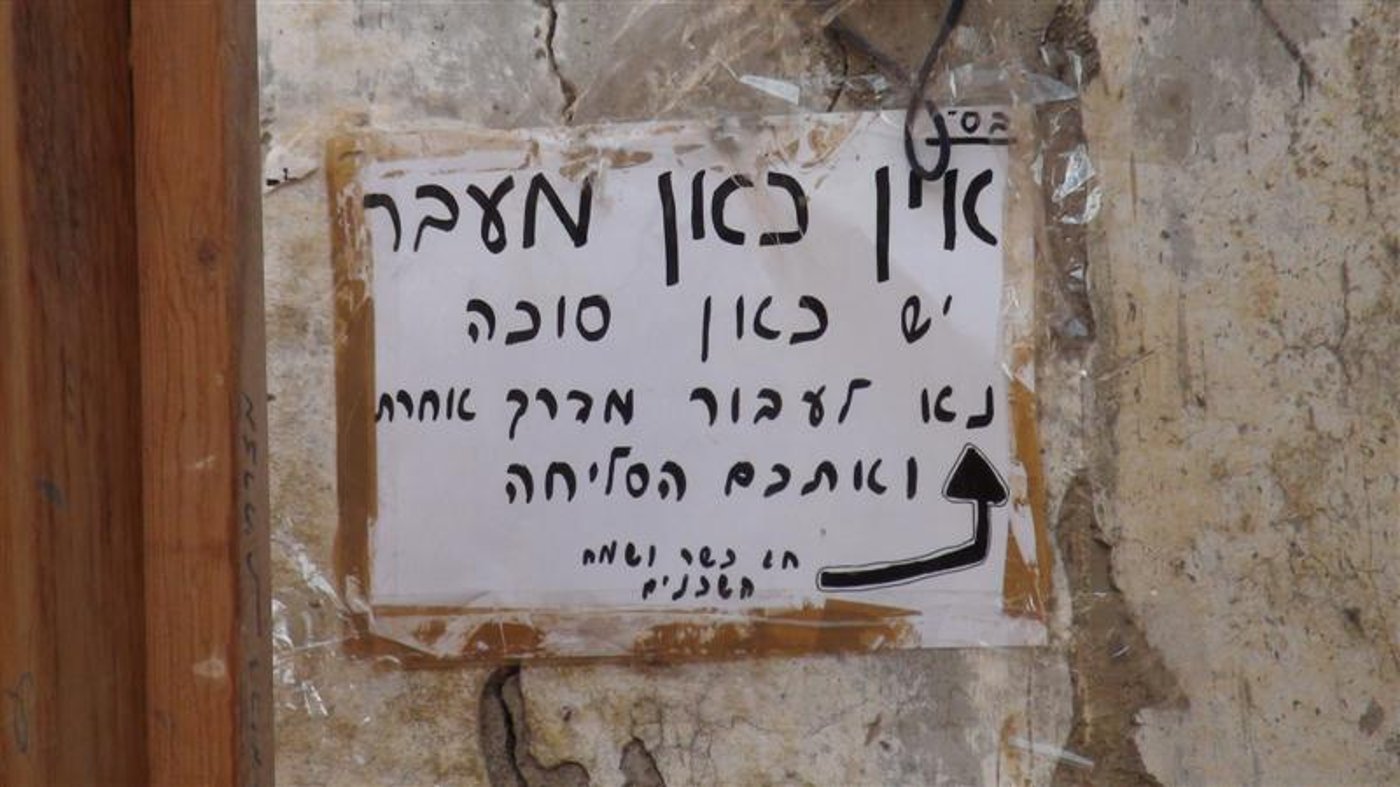 בס"
אין כאון מעבר
יש כאון סוכה
נא לעבור מדרך אחרת
ואתכם הסליחה
חג כשר ושמח
השכנים